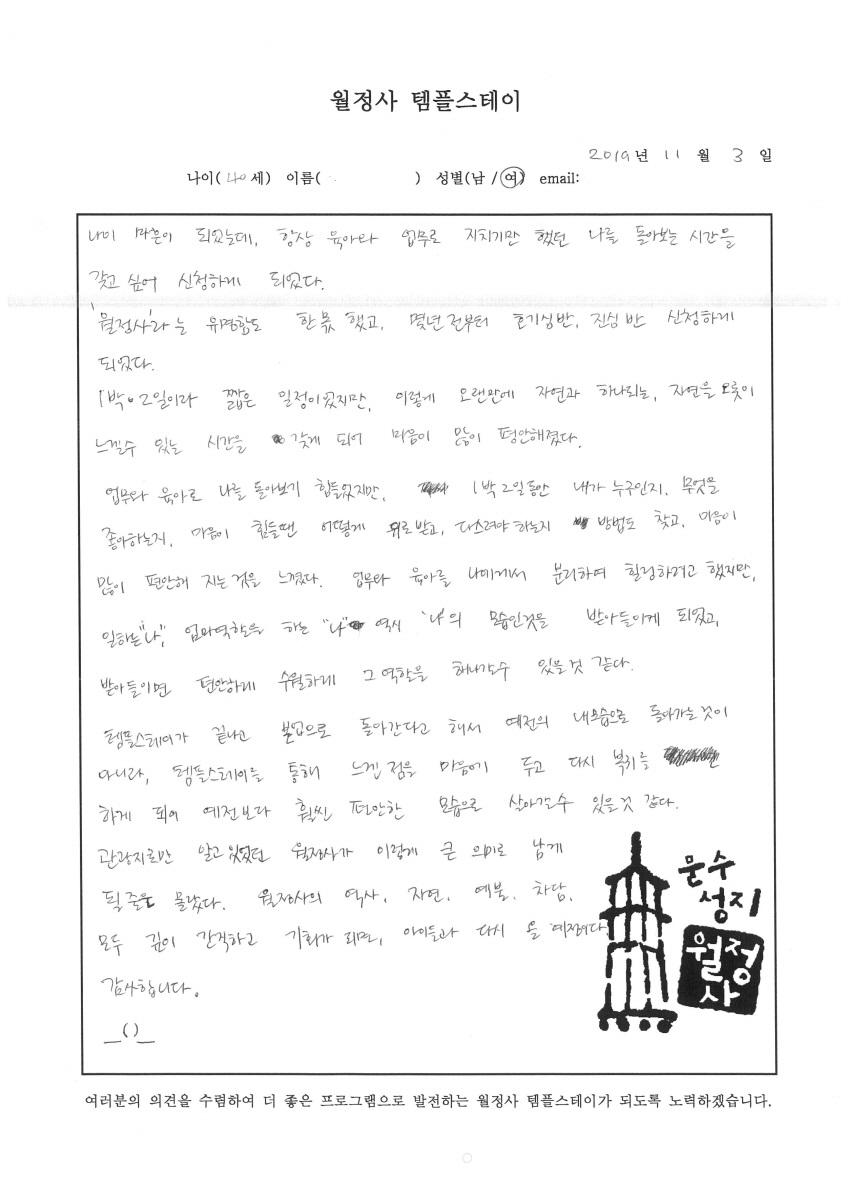 월정사 템플스테이
2019년 11 월 3 일
나이(40세) 이름( ) 성별(남 / 여) email:
나이 마흔이 되었는데, 항상 육아와 업무로 지치기만 했던 나를 돌아보는 시간을
갖고 싶어 신청하게 되었다.
'월정사'라는 유명함도 한 몫 했고, 몇년 전부터 호기심반, 진심 반 신청하게
되었다.
1박 2일이라 짧은 일정이었지만, 이렇게 오랜만에 자연과 하나되는, 자연을 오롯이
느낄수 있는 시간을 갖게 되어 마음이 많이 편안해졌다.
업무와 육아로 나를 돌아보기 힘들었지만, 1박 2일동안 내가 누구인지, 무엇을
좋아하는지, 마음이 힘들땐 어떻게 위로 받고, 다스려야 하는지 방법도 찾고, 마음이
많이 편안해 지는 것을 느꼈다. 업무와 육아를 나에게서 분리하여 힐링하려고 했지만,
일하는 "나", 엄마역할을 하는 "나" 역시 '나'의 모습인것을 받아들이게 되었고,
받아들이면 편안하게 수월하게 그 역할을 해나갈수 있을것 같다.
템플스테이가 끝나고 본업으로 돌아간다고 해서 예전의 내모습으로 돌아가는것이
아니라, 템플스테이를 통해 느낀 점을 마음에 두고 다시 복귀를
하게 되어 예전보다 훨씬 편안한 모습으로 살아갈수 있을것 같다.
관광지로만 알고 있었던 월정사가 이렇게 큰 의미로 남게
될 줄은 몰랐다. 월정사의 역사, 자연, 예불, 차담,
모두 깊이 간직하고 기회가 되면, 아이들과 다시 올 예정이다.
감사합니다.
_( )_
문수
성지
월정
사
여러분의 의견을 수렴하여 더 좋은 프로그램으로 발전하는 월정사 템플스테이가 되도록 노력하겠습니다.